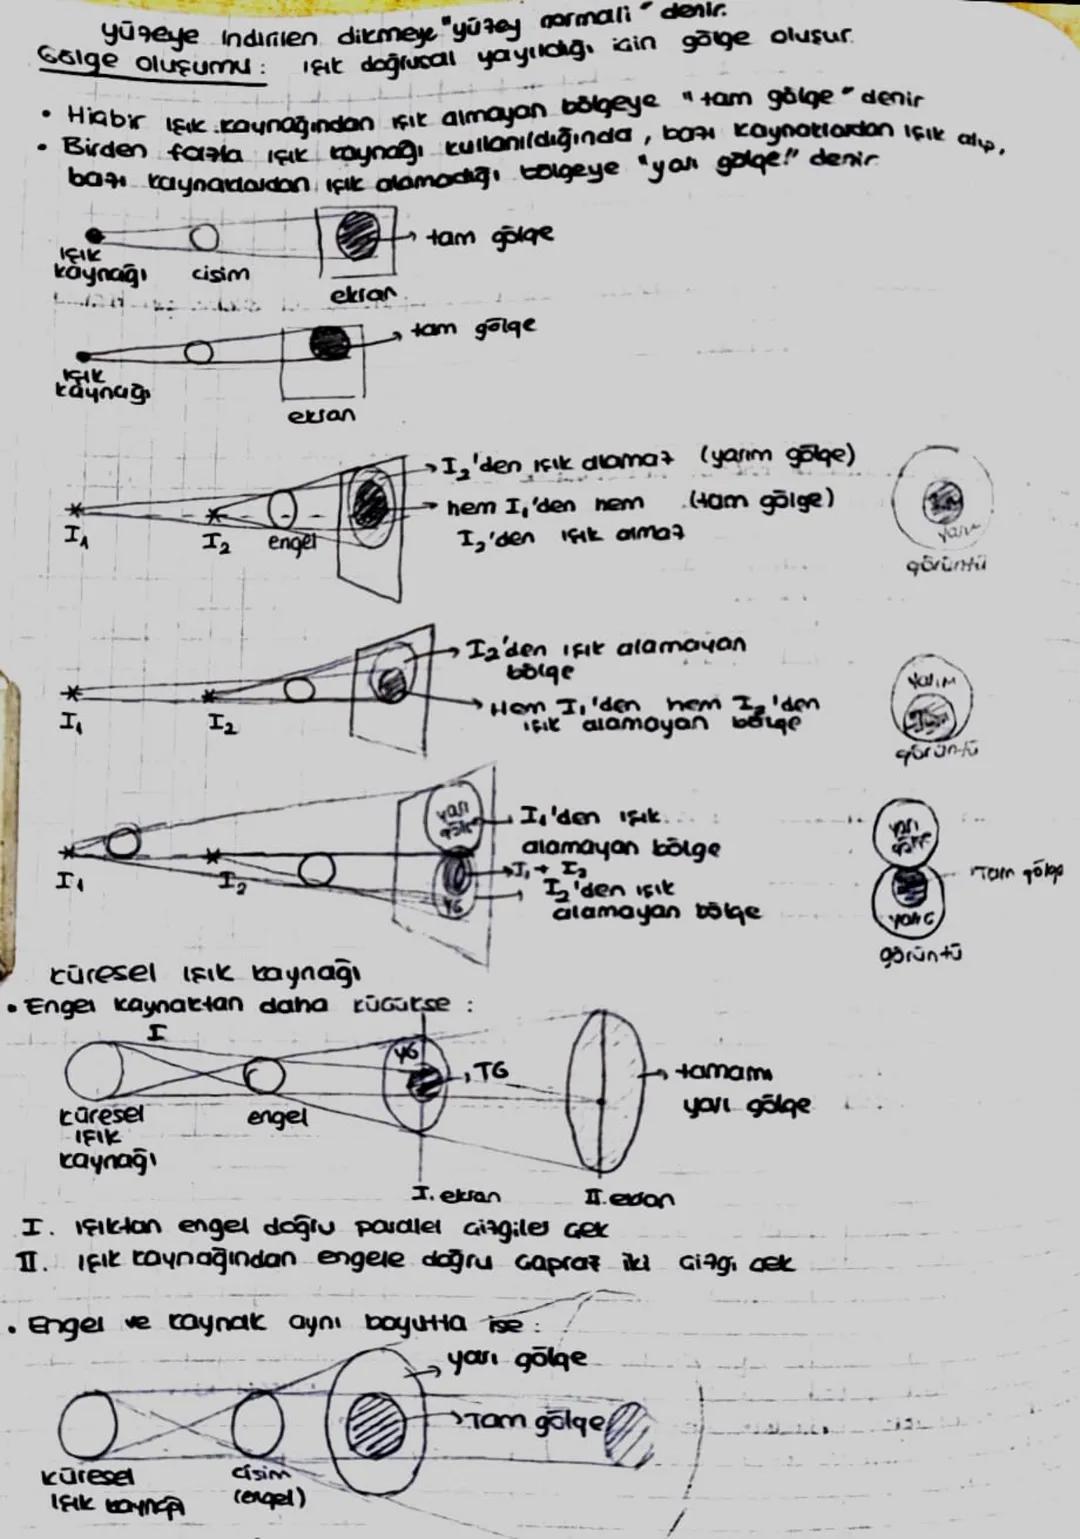 yüzeye indirilen dikmeye "yüzey normali" denir.
Gölge oluşumu: ışık doğrusal yayıldığı için gölge oluşur.
• Hiçbir ışık kaynağından ışık almayan bölgeye "tam gölge" denir
• Birden fazla ışık kaynağı kullanıldığında, bazı kaynaklardan ışık alıp,
bazı kaynaklardan ışık alamadığı bölgeye "yarı gölge" denir
tam gölge
ışık
kaynağı
cisim
ekran
tam gölge
ışık
kaynağı
ekran
I₂'den ışık alamaz (yarım gölge)
hem I₁'den hem (tam gölge)
I₂'den ışık almaz
I₁
I₂
engel
yarım
görüntü
I₂'den ışık alamayan
bölge
Hem I₁'den hem I₂'den
ışık alamayan bölge
I₁
I₂
Yarım
Tam
görüntü
yarı
gölge
I₁'den ışık
alamayan bölge
I₁ + I₂
I₂'den ışık
alamayan bölge
YG
I₁
I₂
yarı
gölge
Tam gölge
yarı G
görüntü
küresel ışık kaynağı
• Engel kaynaktan daha küçükse :
I
YG
TG
tamamı
yarı gölge
küresel
ışık
kaynağı
engel
I. ekran
II. ekran
I. ışıktan engel doğru paralel çizgiler çek
II. ışık kaynağından engele doğru çapraz iki çizgi çek
• Engel ve kaynak aynı boyutta ise :
yarı gölge
Tam gölge
küresel
ışık kaynağı
cisim
(engel)